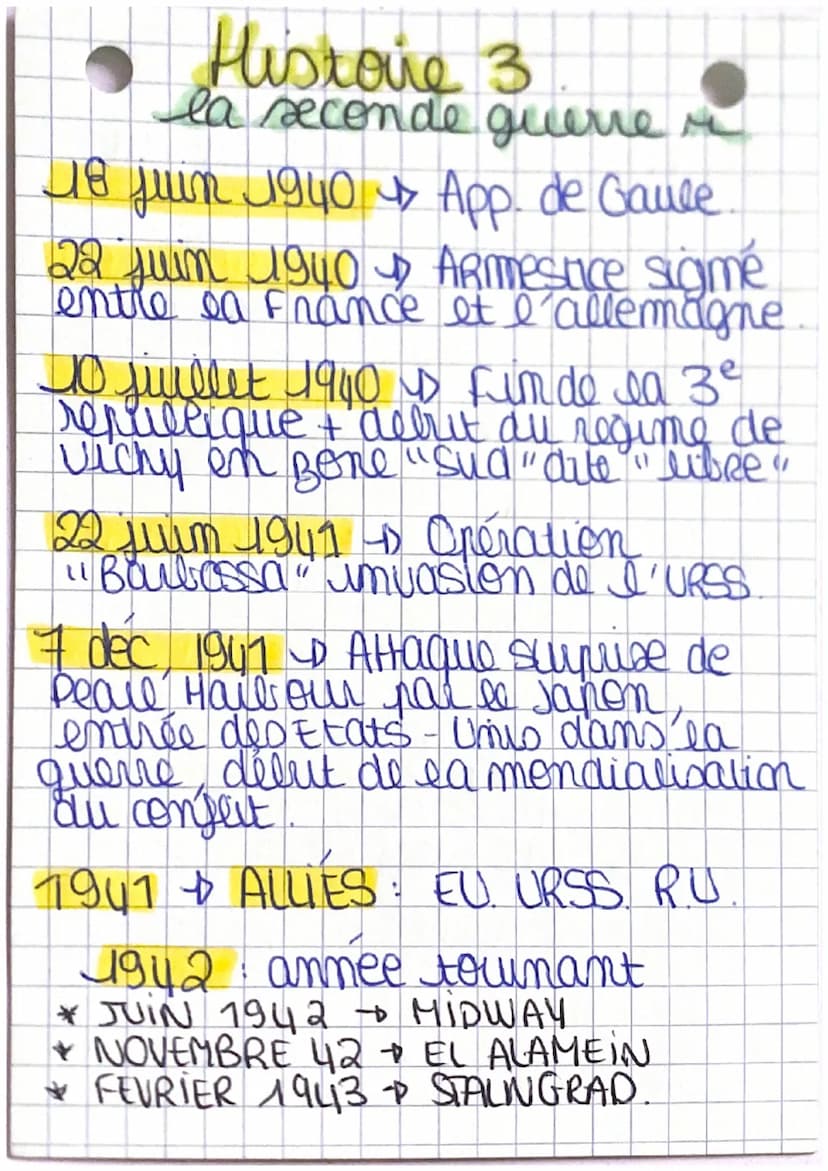 Histoire 3
la seconde guerre m
18 juin 1940 → App. de Gaulle.
22 juin 1940 → ARmestice signé
entre la France et l'allemagne.
10 juillet 1940 → fin de la 3e
republique + debut du regime de
Vichy en zone "sud" dite "libre"
22 juin 1941 → Opération
"Barbossa" invasion de l'URSS.
7 déc, 1941 → Attaque surprise de
Pearl Harbour par le Japon,
entrée des Etats-Unis dans la
guerre, début de la mondialisation
du conflit.
1941 → ALLIÉS: EU. URSS. R.U.
1942 : année tournant
* JUIN 1942 → MIDWAY
* NOVEMBRE 42 → EL ALAMEIN
* FEVRIER 1943 → STALINGRAD.